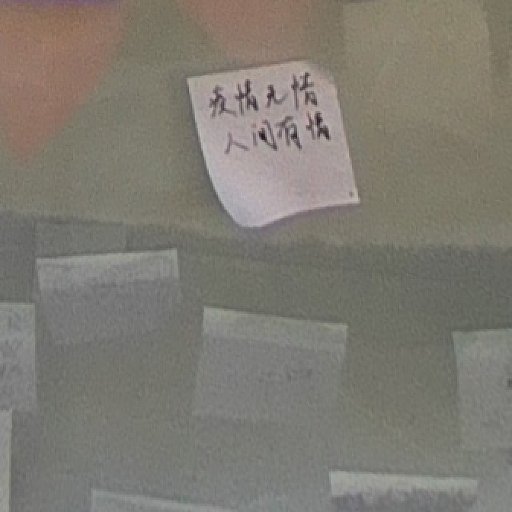 疫情无情
人间有情